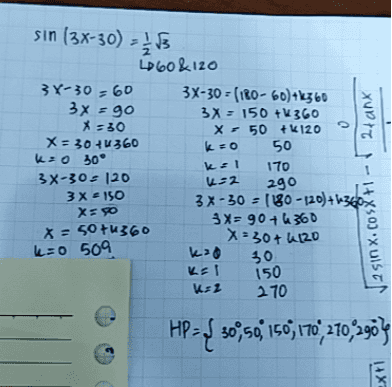 sin (3x-30) = 1/2 √3
↳ 60 & 120
3x-30 = 60
3x = 90
x = 30
x = 30 + k360
k = 0 30°
3x-30 = 120
3x = 150
x = 50
x = 50 + k360
k = 0 50°
3x-30 = (180-60) + k360
3x = 150 + k360
x = 50 + k120
k = 0 50
k = 1 170
k = 2 290
3x-30 = (180-120) + k360
3x = 90 + k360
x = 30 + k120
k = 0 30
k = 1 150
k = 2 270
HP = { 30°, 50°, 150°, 170°, 270°, 290° }
2 sin x. cos x + 1 -
2 tan x
0
x+1